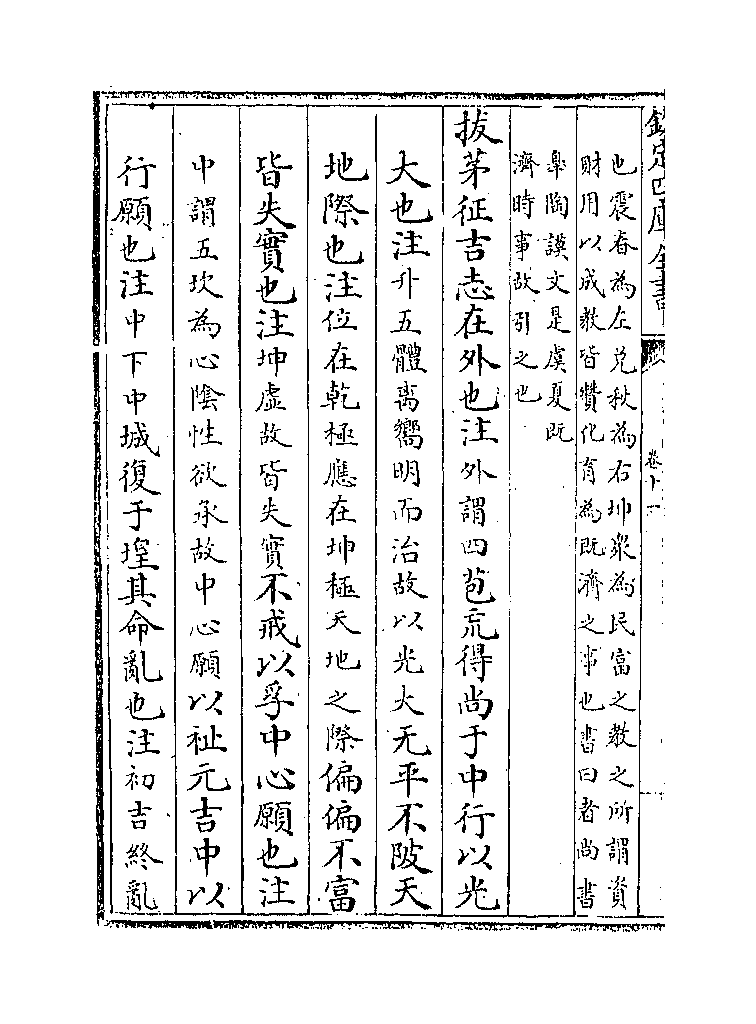 欽定四庫全書
卷十一
也震春為左兑秋為右坤衆為民富之教之所謂資
財用以成教皆贊化育為既濟之事也書曰者尚書
臯陶謨文是虞夏既
濟時事故引之也
拔茅征吉志在外也注外謂四苞巟得尚于中行以光
大也注升五體离嚮明而治故以光大无平不陂天
地際也注位在乾極應在坤極天地之際偏偏不富
皆失實也注坤虚故皆失實不戒以孚中心願也注
中謂五坎為心陰性欲承故中心願以祉元吉中以
行願也注中下中城復于堭其命亂也注初吉終亂